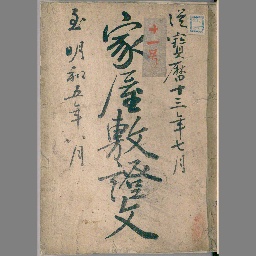 従寳暦十三年七月
十一号
家屋敷證文
至明和五年八月